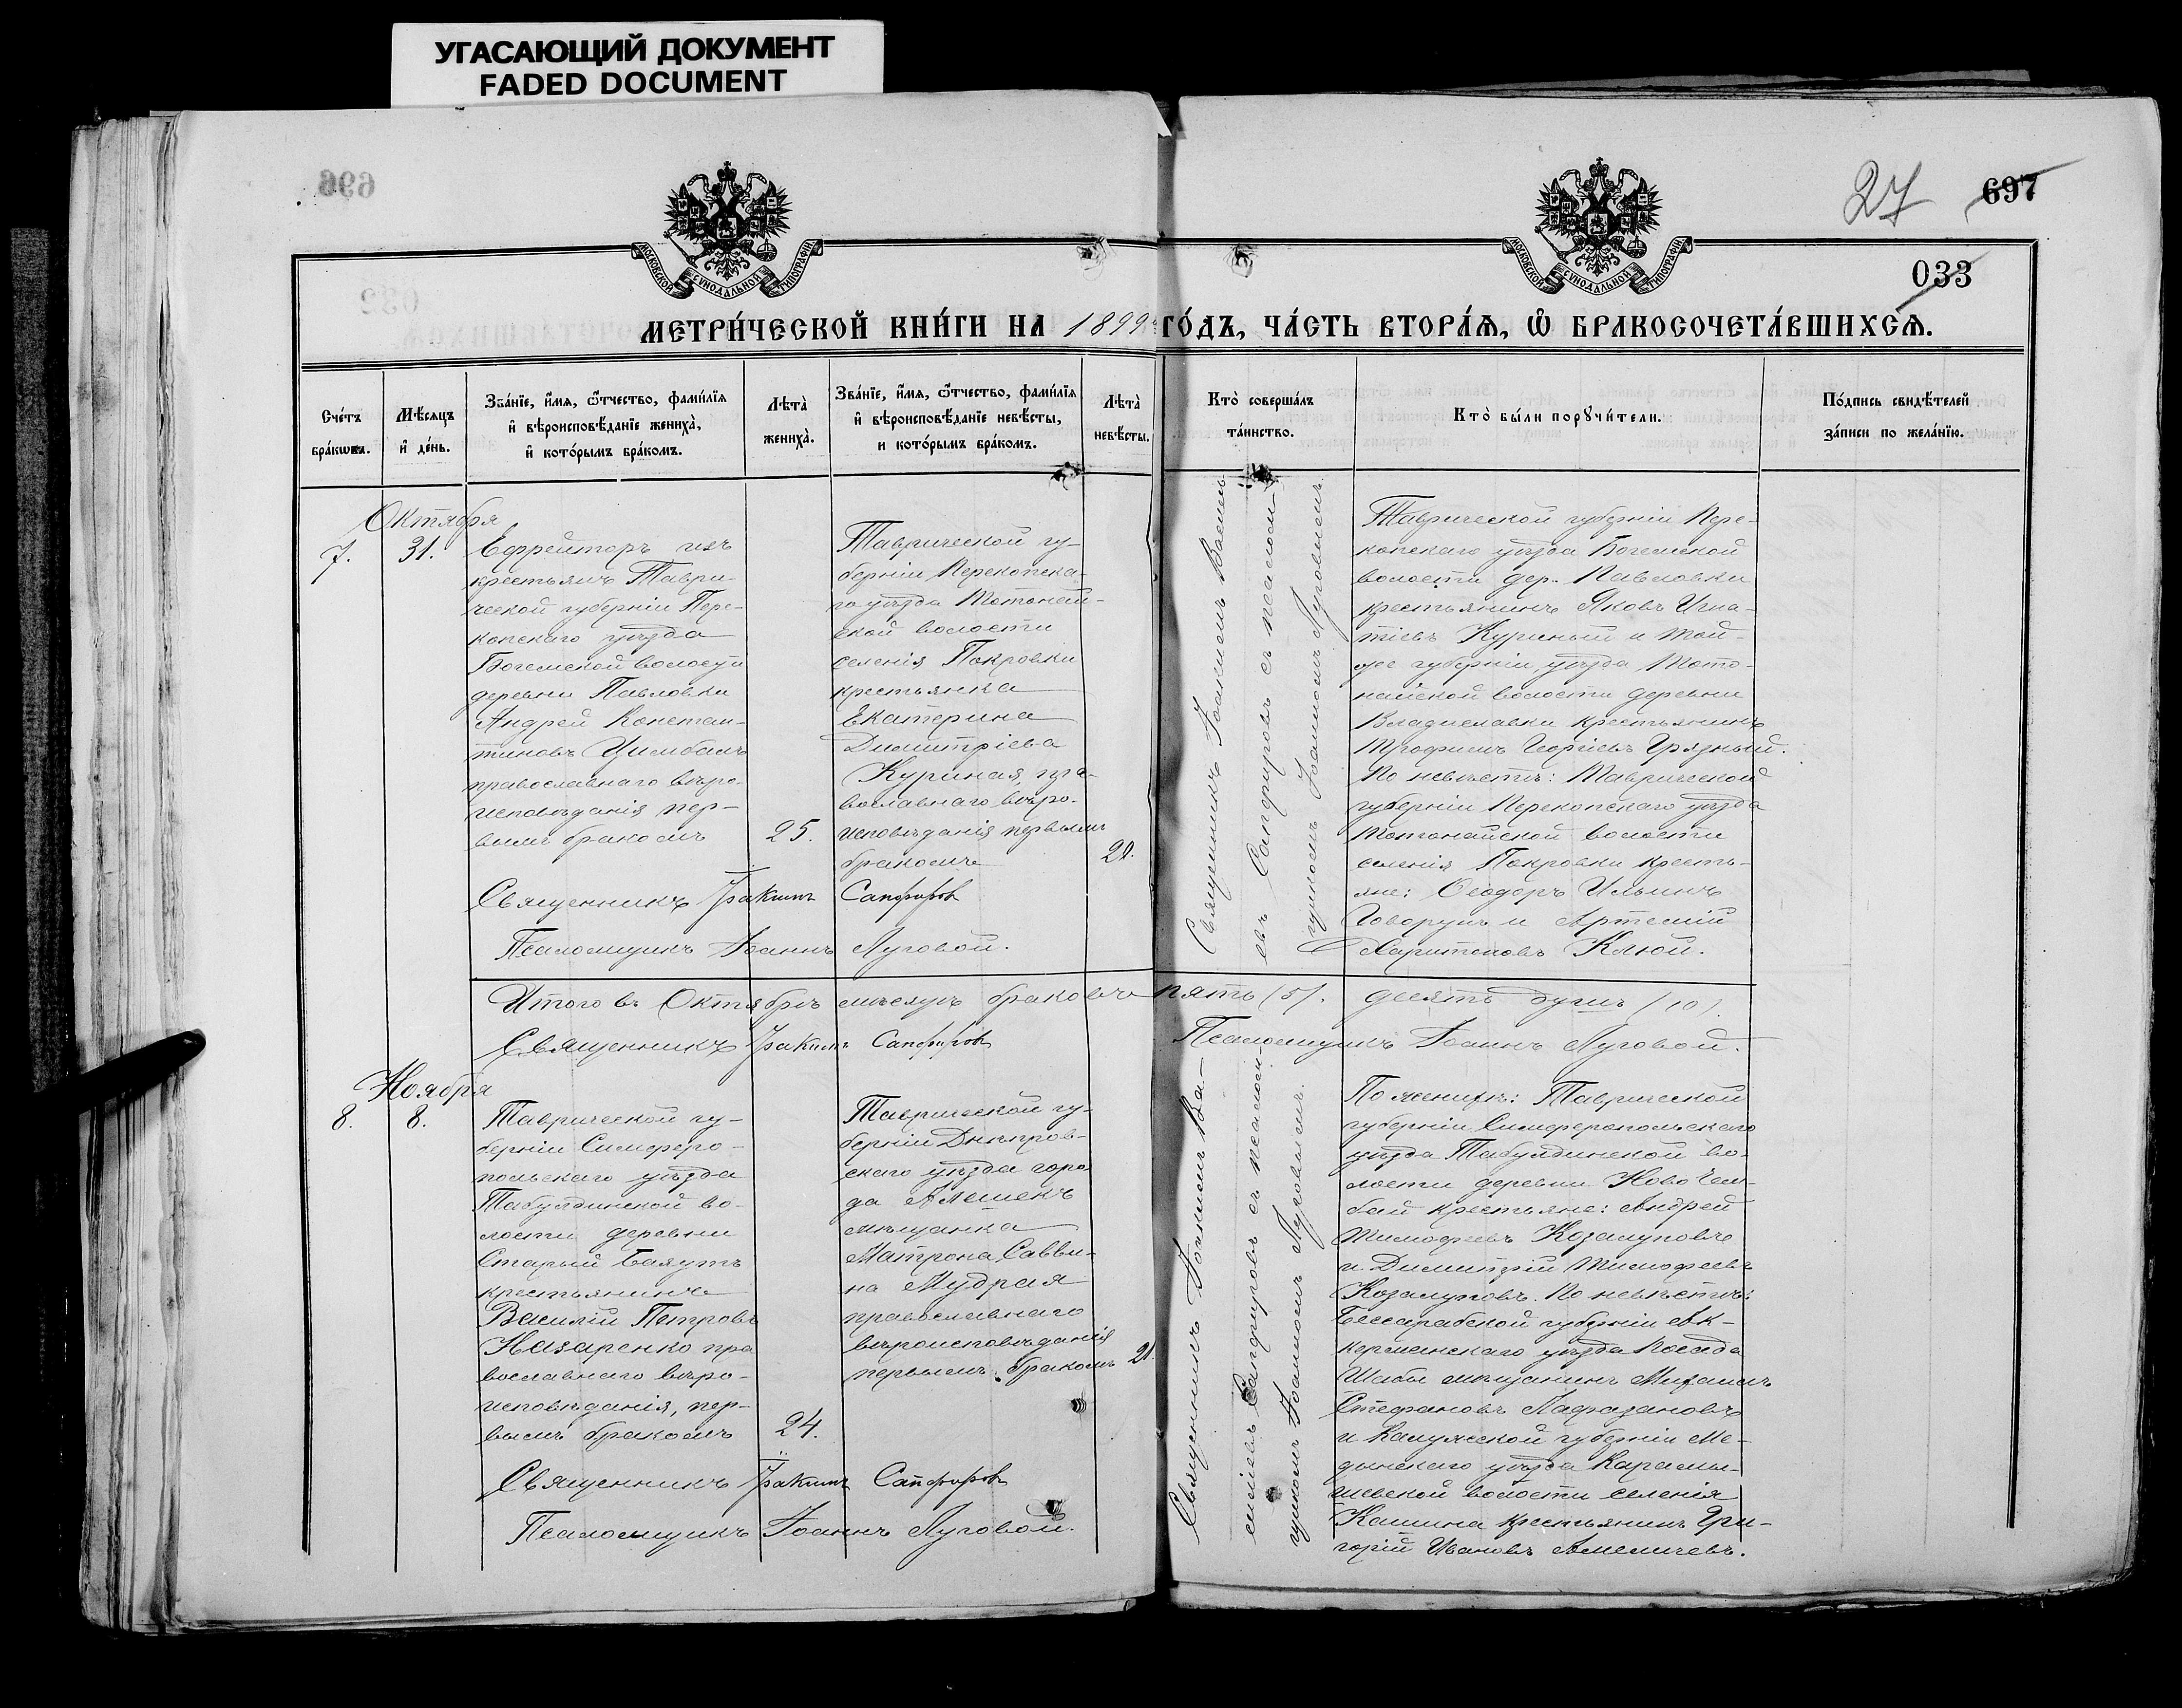 УГАСАЮЩИЙ ДОКУМЕНТ
FADED DOCUMENT
696
27
697
033
МОСКОВСКОЙ СѴНОДАЛЬНОЙ ТИПОГРАФІИ
МОСКОВСКОЙ СѴНОДАЛЬНОЙ ТИПОГРАФІИ
МЕТРИ́ЧЕСКОЙ КНИ́ГИ НА 1899 ГО́ДЪ, ЧА́СТЬ ВТОРА́Ѧ, Ѡ҆ БРАКОСОЧЕТА́ВШИХСѦ.
Счетъ
браковъ.
Мѣсяцъ
и день.
Званіе, имя, отчество, фамилія
и вѣроисповѣданіе жениха,
и которымъ бракомъ.
Лѣта
жениха.
Званіе, имя, отчество, фамилія
и вѣроисповѣданіе невѣсты,
и которымъ бракомъ.
Лѣта
невѣсты.
Кто совершалъ
таинство.
Кто были поручители.
Подпись свидѣтелей
записи по желанію.
Октября
7.
31.
Ефрейторъ изъ
крестьянъ Таври-
ческой губерніи Пере-
копскаго уѣзда
Богемской волости
деревни Павловки
Андрей Констан-
тиновъ Цимбалъ
православнаго вѣро-
исповѣданія пер-
вымъ бракомъ
25.
Таврической гу-
берніи Перекопска-
го уѣзда Тотанай-
ской волости
селенія Покровки
крестьянка
Екатерина
Димитріева
Куриная, пра-
вославнаго вѣро-
исповѣданія первымъ
бракомъ
21.
Священникъ Іоакимъ Василь-
евъ Сапфировъ съ псалом-
щикомъ Іоанномъ Луговымъ.
Таврической губерніи Пере-
копскаго уѣзда Богемской
волости дер. Павловки
крестьянинъ Яковъ Игна-
тіевъ Куриный и той-
же губерніи уѣзда Тота-
найской волости деревни
Владиславки крестьянинъ
Трофимъ Георгіевъ Грязный.
По невѣстѣ: Таврической
губерніи Перекопскаго уѣзда
Тотанайской волости
селенія Покровки кресть-
яне: Ѳеодоръ Ильинъ
Говорунъ и Артемій
Харитоновъ Клюй.
Священникъ Іоакимъ Сапфировъ
Псаломщикъ Іоаннъ Луговой.
Итого въ Октябрѣ мѣсяцѣ браковъ пять (5). десять душъ (10).
Священникъ Іоакимъ Сапфировъ Псаломщикъ Іоаннъ Луговой.
Ноября
8.
8.
Таврической гу-
берніи Симферо-
польскаго уѣзда
Табулдинской во-
лости деревни
Старый Баяутъ
крестьянинъ
Василій Петровъ
Назаренко пра
вославнаго вѣро-
исповѣданія, пер-
вымъ бракомъ
24.
Таврической гу-
берніи Днѣпров-
скаго уѣзда горо
да Алешекъ
мѣщанка
Матрона Савви-
на Мудрая
православнаго
вѣроисповѣданія
первымъ бракомъ
21.
Священникъ Іоакимъ Ва-
сильевъ Сапфировъ съ псалом-
щикомъ Іоанномъ Луговымъ.
По женихѣ: Таврической
губерніи Симферопольскаго
уѣзда Табулдинской во-
лости деревни Ново Чем-
бай крестьяне: Андрей
Тимофѣевъ Козалуповъ
и Димитрій Тимофеевъ
Козалуповъ. По невѣстѣ:
Бессарабской губерніи Ак-
керманскаго уѣзда Посада
Шабы мѣщанинъ Михаилъ
Стефановъ
и Калужской губерніи Ме-
дынскаго уѣзда Карамы-
шевской волости селенія
Кашина крестьянинъ Гри-
горій Ивановъ Амеличевъ.
Священникъ Іоакимъ Сапфировъ
Псаломщикъ Іоаннъ Луговой.